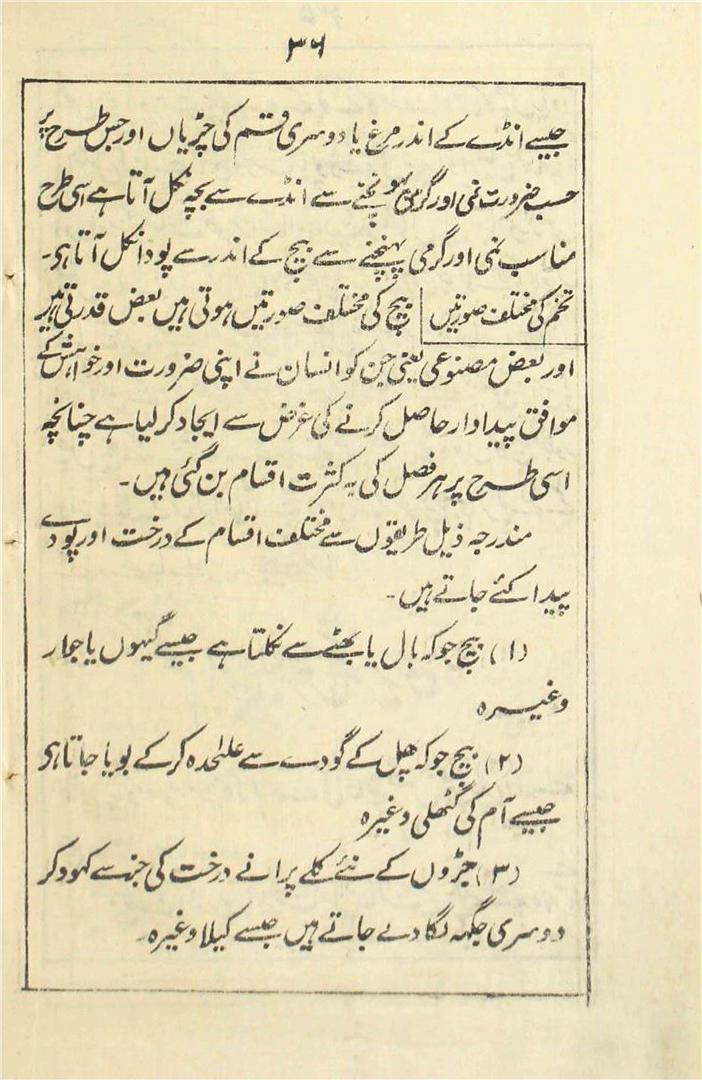 ۳۶
جیسے انڈے کے اندر مرغ یا دوسری قسم کی چڑیاں اور جس طرح پر
حسب ضرورت نمی اور گرمی پہونچنے سے انڈے سے بچہ نکل آتا ہے اسی طرح
مناسب نمی اور گرمی پہنچنے سے بیج کے اندر سے پودا نکل آتا ہی۔
تخم کی مختلف صورتیں بیج کی مختلف صورتیں ہوتی ہیں بعض قدرتی ہیں
اور بعض مصنوعی یعنی جن کو انسان نے اپنی ضرورت اور خواہش کے
موافق پیداوار حاصل کرنے کی غرض سے ایجاد کر لیا ہے چنانچہ
اسی طرح پر ہر فصل کی بہ کثرت اقسام بن گئی ہیں۔
مندرجہ ذیل طریقوں سے مختلف اقسام کے درخت اور پودے
پیدا کئے جاتے ہیں۔
(۱) بیج جو کہ بال یا بھٹے سے نکلتا ہے جیسے گیہوں یا جوار
وغیرہ
(۲) بیج جو کہ پھل کے گودے سے علٰحدہ کر کے بویا جاتا ہی
جیسے آم کی گٹھلی وغیرہ
(۳) جڑوں کے نئے کلے پرانے درخت کی جڑ سے کھود کر
دوسری جگہہ لگا دیے جاتے ہیں جیسے کیلا وغیرہ۔